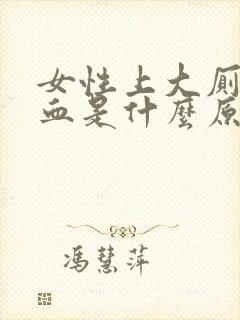 女性上大厕
血是什麼原
冯慧萍